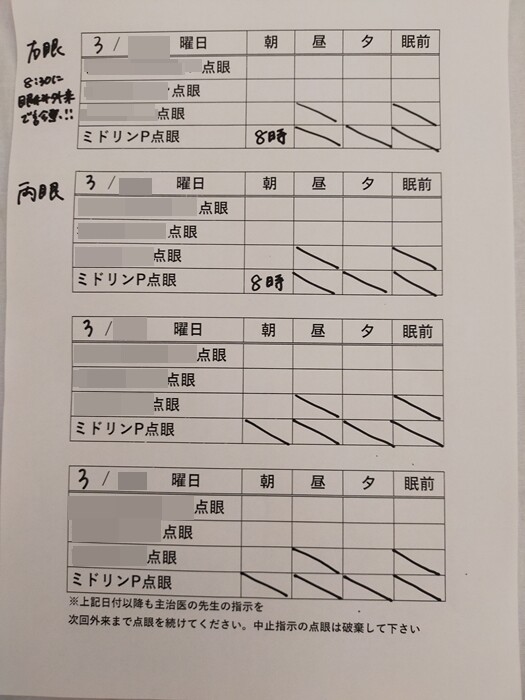 右眼
8:30に
眼科外来
で診察!!
3/ 曜日 朝 昼 夕 眠前
点眼
点眼
点眼
ミドリンP点眼 8時
両眼
3/ 曜日 朝 昼 夕 眠前
点眼
点眼
点眼
ミドリンP点眼 8時
3/ 曜日 朝 昼 夕 眠前
点眼
点眼
点眼
ミドリンP点眼
3/ 曜日 朝 昼 夕 眠前
点眼
点眼
点眼
ミドリンP点眼
※上記日付以降も主治医の先生の指示を
次回外来まで点眼を続けてください。中止指示の点眼は破棄して下さい